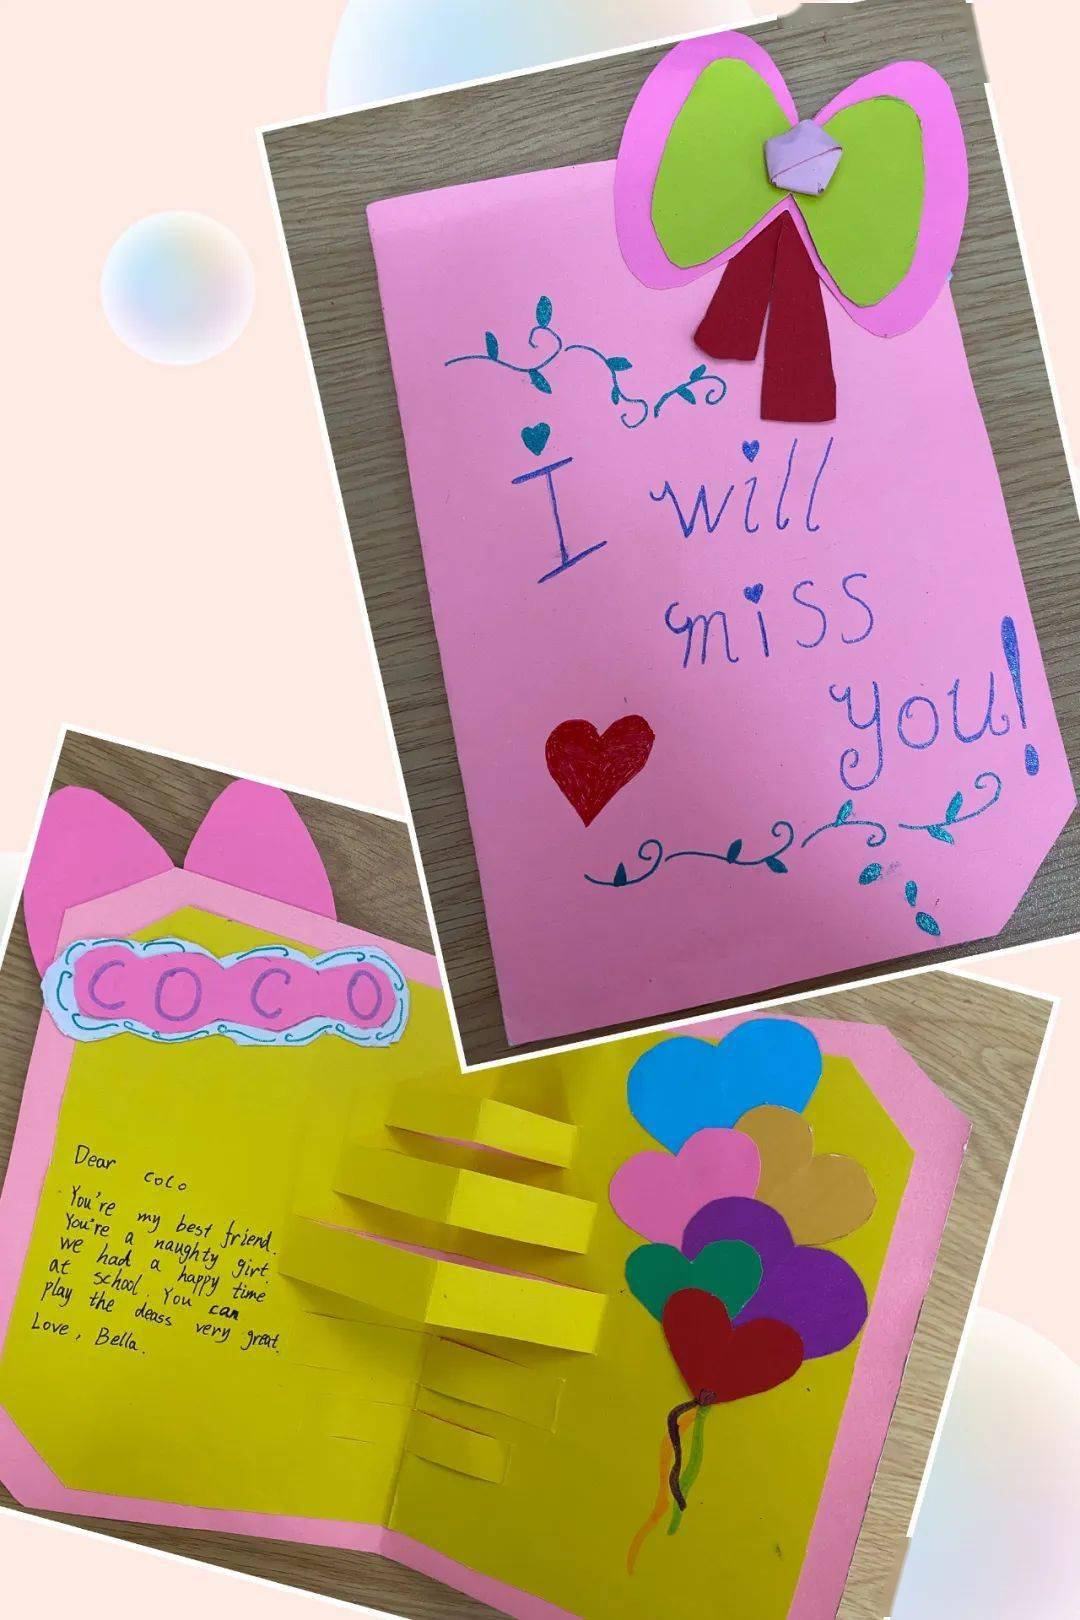 I will
miss
you!
COCO
Dear coco
You're my best friend.
You're a naughty girt
we had a happy time
at school. You can
play the deass very great.
Love, Bella.